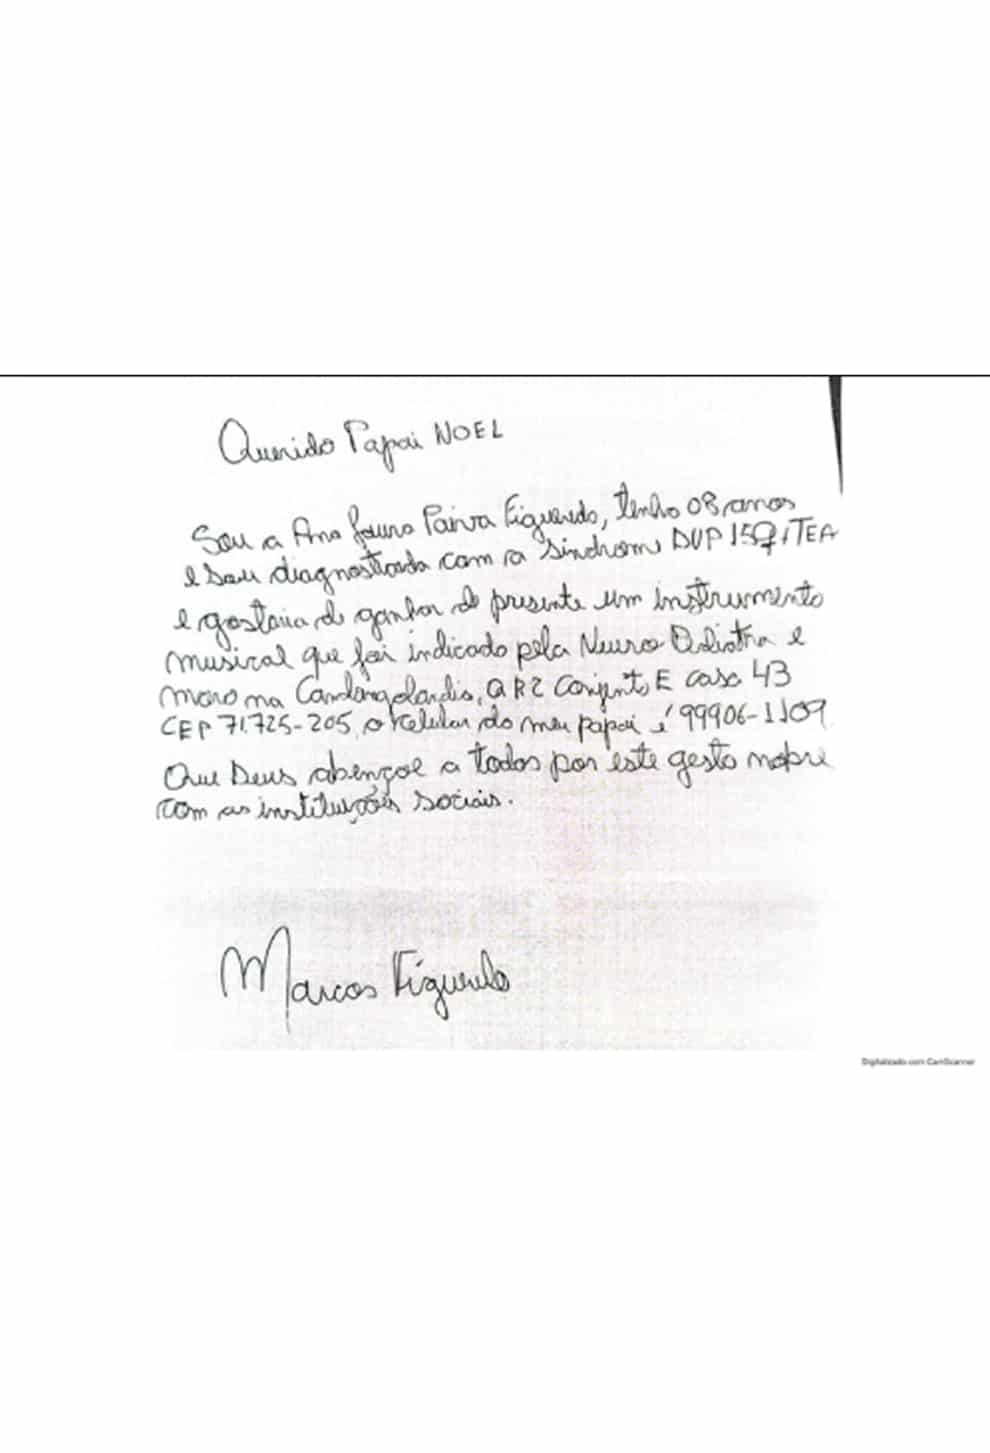 Querido Papai NOEL
Sou a Ana Laura Paiva Figueredo, tenho 08 anos
e sou diagnosticada com a sindrome DUP 15q, TEA
e gostaria de ganhar de presente um instrumento
musical que foi indicado pela Neuro e
moro na Candangolandia, QR2 Conjento E casa 43
CEP 71.725-205, o celular do meu papai é 99906-1109
Que Deus abençoe a todos por este gesto nobre
com as instituições sociais.
Marcos Figueredo
Digitalizado com CamScanner